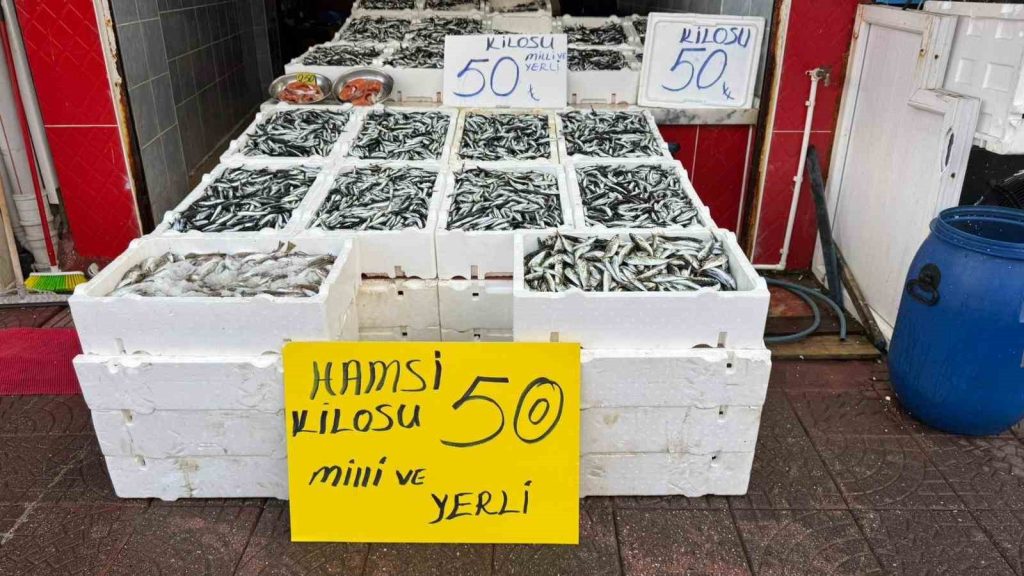 KİLOSU
50 MİLLİ VE
YERLİ
₺
KİLOSU
50 ₺
HAMSİ
KİLOSU 50
Milli VE
YERLİ